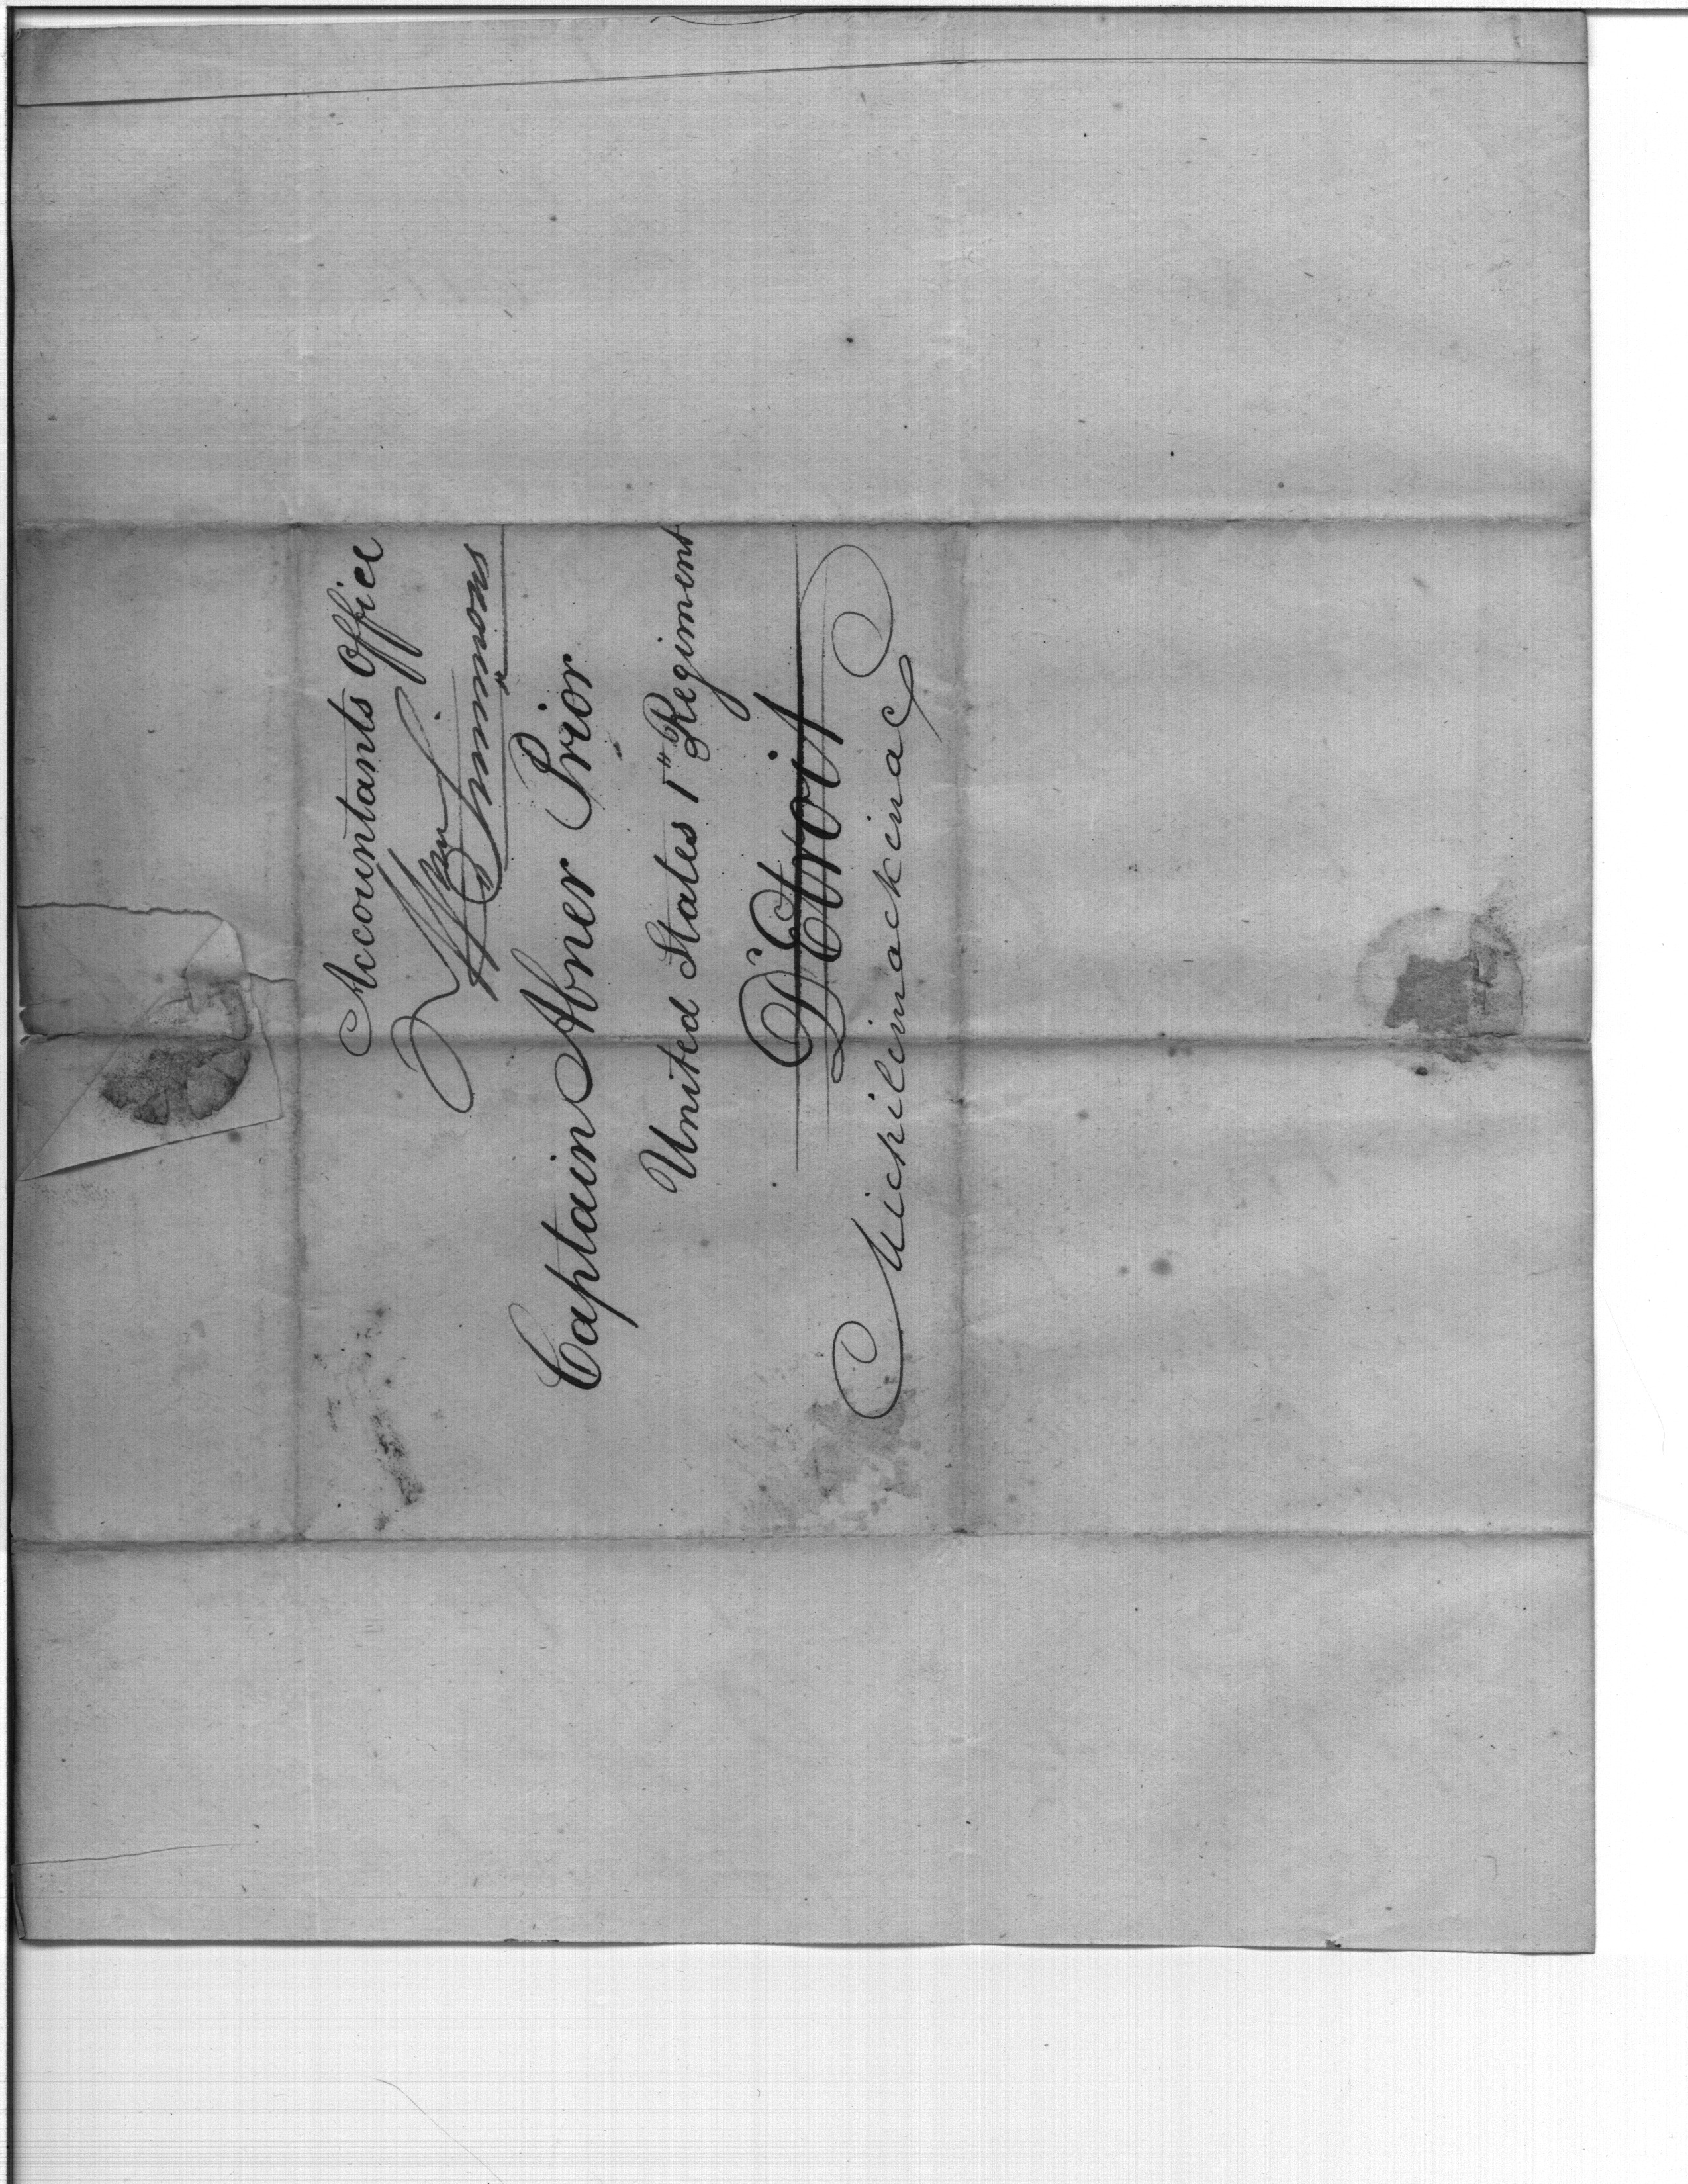 Accountants Office
Wm Simmons
Captain Abner Prior
United States 1st Regiment
D'Etroit
Michilimackinac